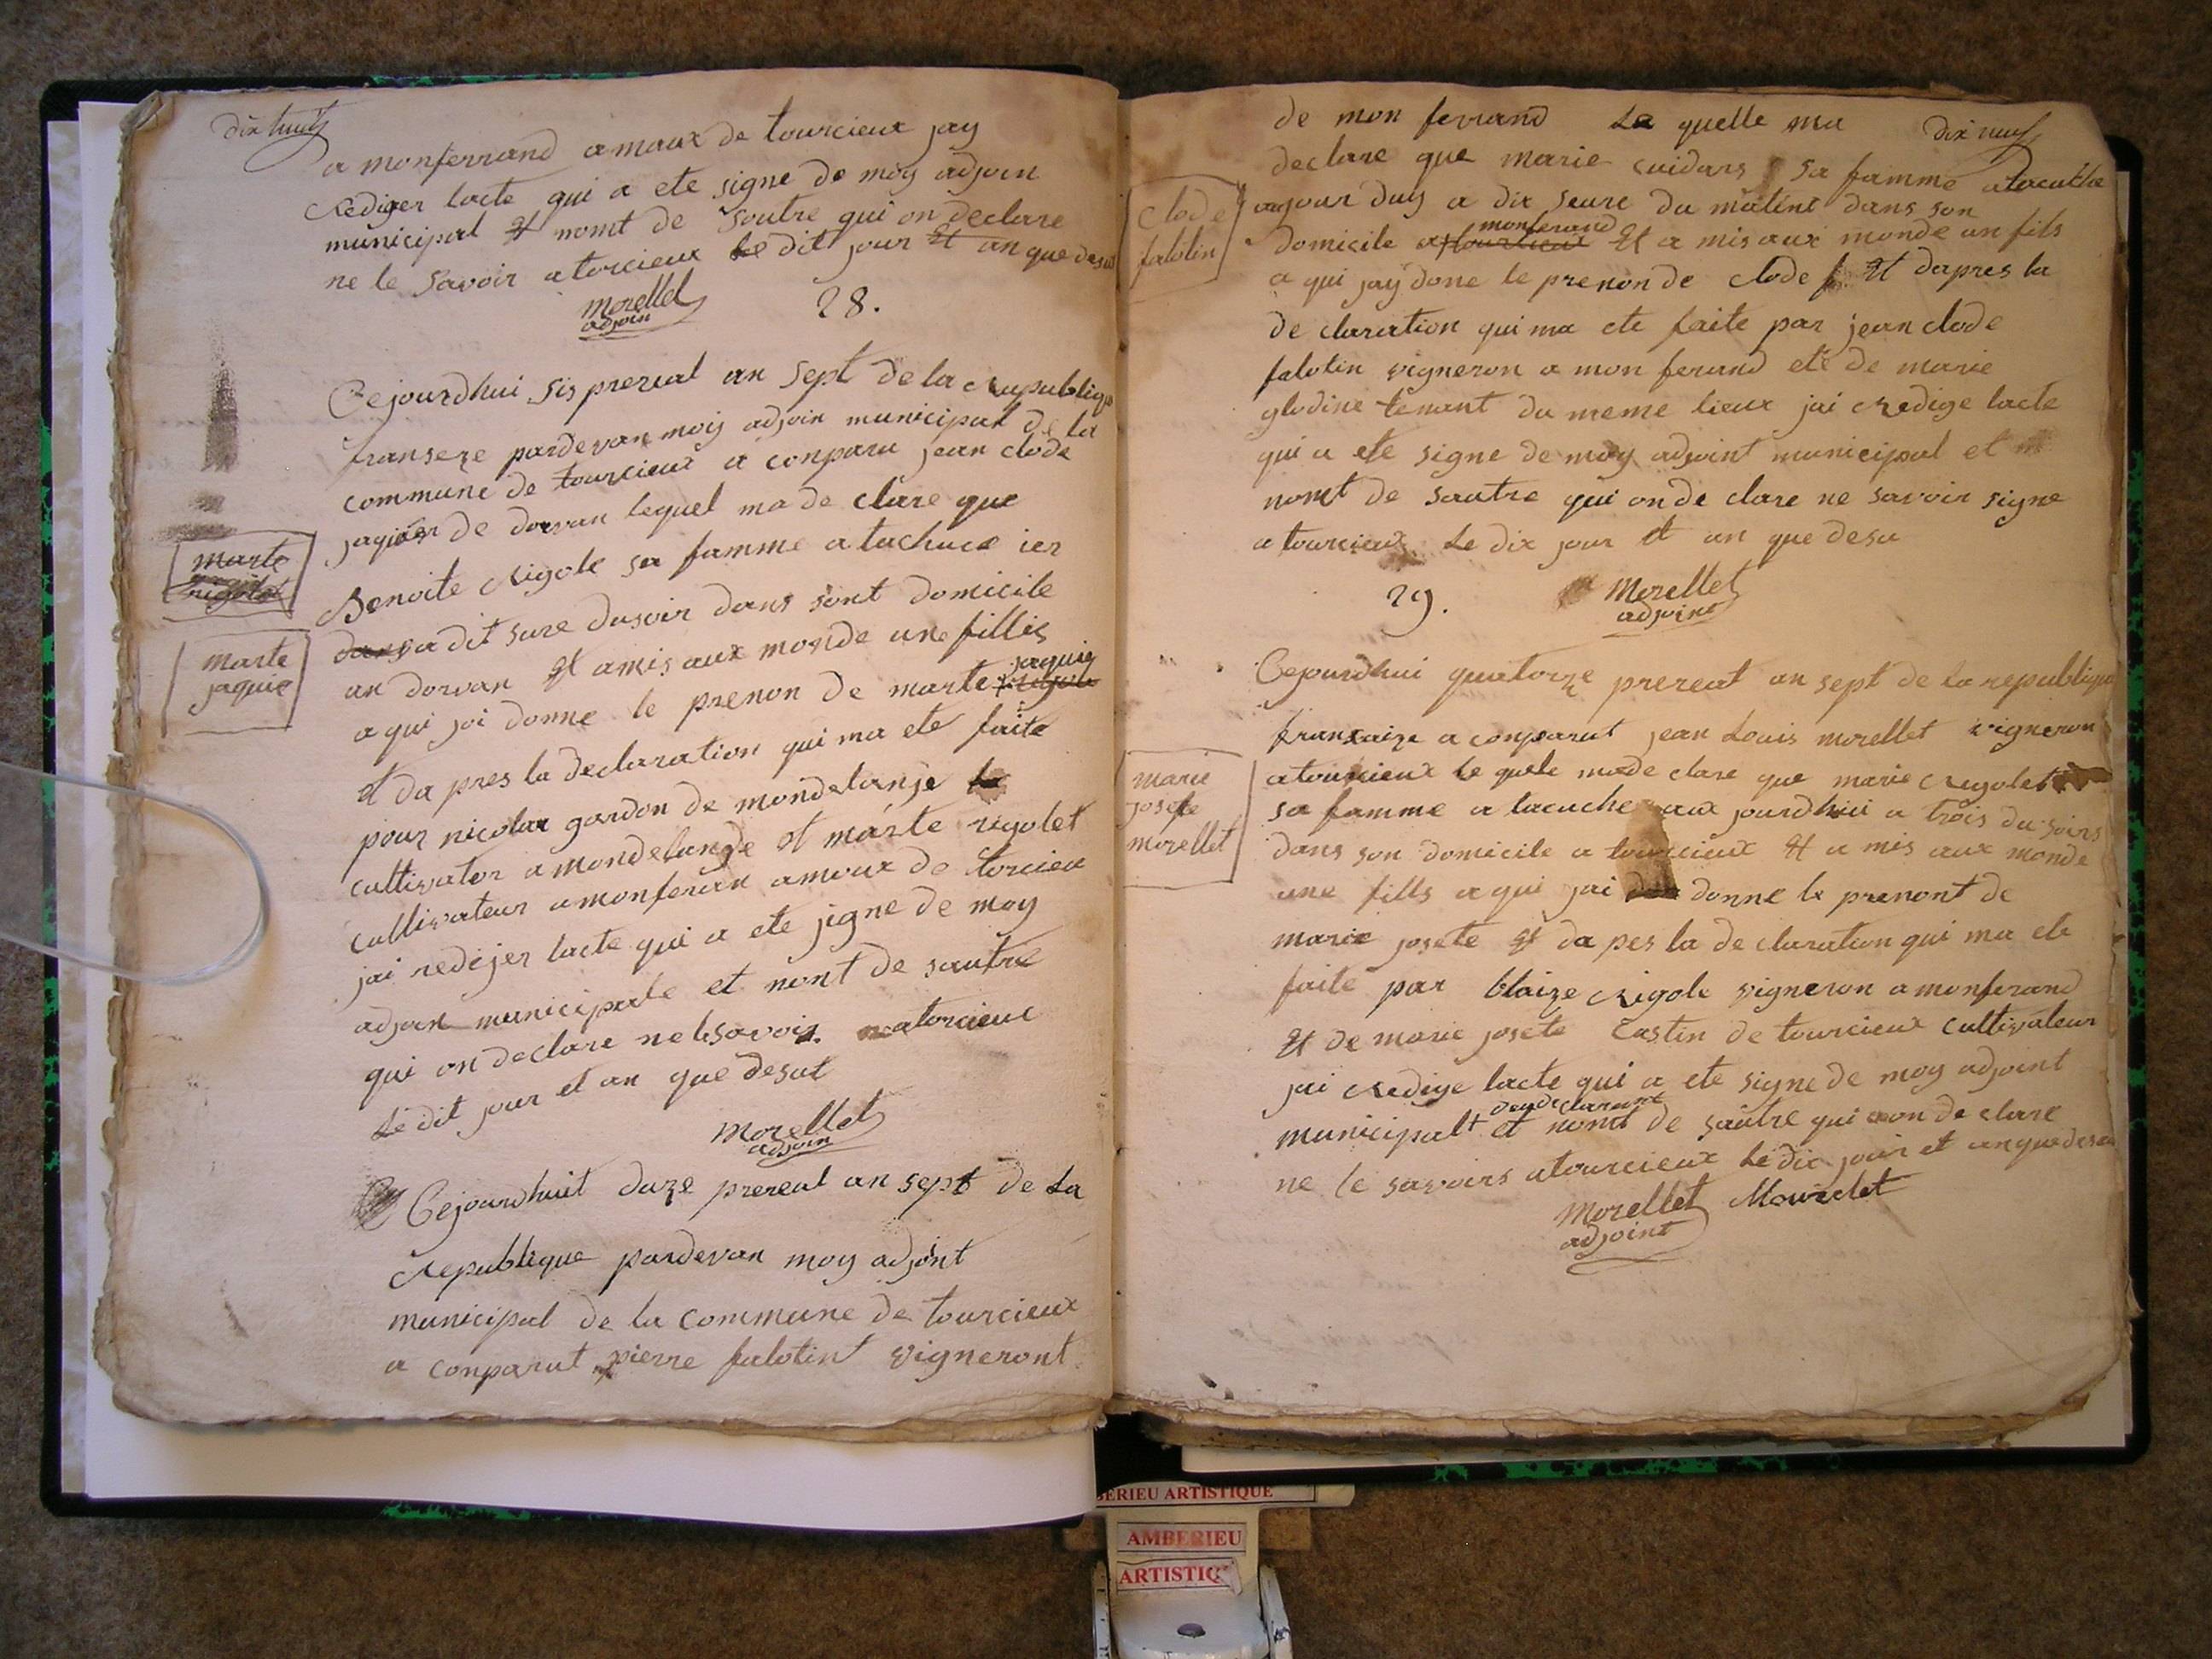 dix huit
a monferrand amaux de tourcieux jay
rediger lacte qui a ete signe de moy adjoin
municipal et nomt de soutre qui on declare
ne le savoir a torcieux le dit jour et an que desu
morellet
adjoin
28.
Cejourdhui sis prereal an sept de la republique
franseze pardevan moy adjoin municipal de la
commune de tourcieux a conparu jean clode
jaquier de dorvan lequel ma de clare que
marte
rigolet
Benoite rigole sa famme a tachuce ier
dans a dit sure dusoir dans sont domicile
marte
jaquie
an dorvan et amis aux monde une fillis
a qui jai donne le prenon de marte rigole jaquie
et da pres la declaration qui ma ete faite
pour nicolax gardon de mondelanje la
cultivator a mondelange et marte rigolet
cultivateur a monferan amoux de torcieu
jai redijer lacte qui a ete jigne de moy
adjoin municipale et nont de sautre
qui on declare ne lesavoir. a torcieuc
Lé dit jour et an que desut
morellet
adjoin
Cejourdhuit duze prereal an sept de La
republique pardevan moy adjont
municipal de la commune de tourcieux
a conparut pierre falotint vigneront
dix neuf
de mon ferrand Le quelle ma
declare que marie cuidars sa famme atacuthe
clode
falotin
aujour duy a dix seure du matint dans son
monferand
domicile a tourcieux et a mis aux monde un fils
a qui jay done le prenon de clode f et dapres la
de claration qui ma ete faite par jean clode
falotin vigneron a mon ferand eté de marie
glodine tenant du meme lieux jai redige lacte
qui a ete signe de moy adjoint municipal et
nomt de sautre qui on de clare ne savoir signe
a tourcieux Le dix jour et an que desu
29.
Morellet
adjoint
Cejourdhui quatorze prereat an sept de la republique
franxaize a conparut jean Louis morellet vigneron
marie
josefe
morellet
atourcieux le quele made clare que marie rigolet
sa famme a tacuche aux jourdhui a trois du soirs
dans son domicile a tourcieux et a mis aux monde
une fills a qui jai don donne le prenont de
marie josete et da pes la de claration qui ma ete
faite par blaize rigole vigneron a monferand
et de marie josete castin de tourcieux cultivateur
jai redige lacte qui a ete signe de moy adjoint
deux de clarant
municipalt et nomt de sautre qui on de clare
ne le savoirs atourcieux le dix jour et an que desu
Morellet Mourelet
adjoint
BERIEU ARTISTIQUE
AMBERIEU
ARTISTIQ